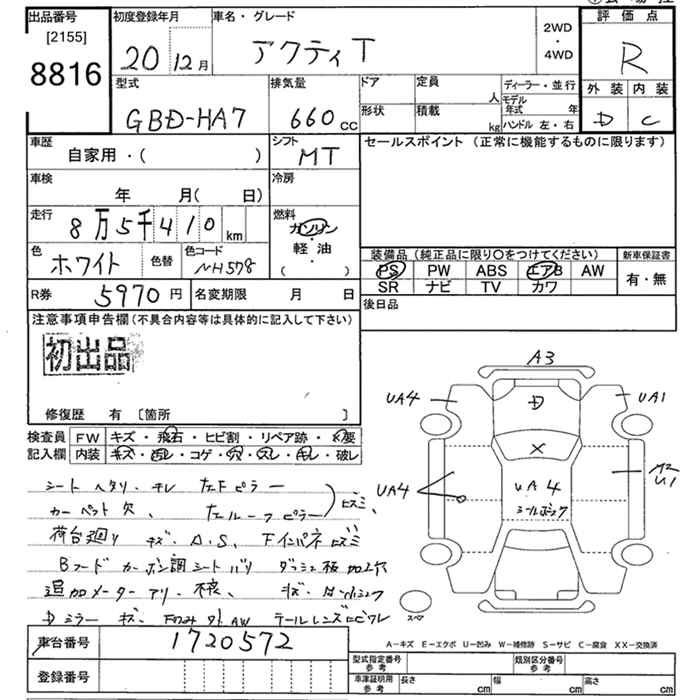 出品番号
[2155]
8816
初度登録年月
20 12月
車名・グレード
アクティ T
2WD
・
4WD
評価点
R
型式
GBD-HA7
排気量
660 cc
ドア
定員
人
ディーラー・並行
モデル年式 年
形状
積載
kg
ハンドル 左・右
外装
内装
D
C
車歴
自家用・( )
シフト
MT
セールスポイント (正常に機能するものに限ります)
車検
年 月( 日)
冷房
走行
8万5千410 km
燃料
ガソリン
・
軽油
( )
色
ホワイト
色替
色コード
NH578
装備品 (純正品に限り○をつけてください)
PS PW ABS エアB AW
SR ナビ TV カワ
新車保証書
有・無
R券
5970円
名変期限 月 日
後日品
注意事項申告欄(不具合内容等は具体的に記入して下さい)
初出品
修復歴 有 〔箇所 〕
検査員
記入欄
FW キズ・飛石・ヒビ割・リペア跡・×要
内装 キズ・汚レ・コゲ・穴・スレ・キレ・破レ
シートヘタリ・キレ 左Fピラー
カーペット欠、 左ルーフピラー
ヒズミ、
荷台廻り キズ、A.S、Fインパネヒズミ
Bフードカーボン調シートバリ ダッシュ板加工穴
追加メーターアリ・
Dミラーキズ、 AW テールレンズヒビワレ
A3
UA4
UA1
D
X
UA4
UA4
A2
U1
スペア
A−キズ E−エクボ U−凹み W−補修跡 S−サビ C−腐食 XX−交換済
車台番号
1720572
登録番号
型式指定番号
参考
類別区分番号
参考
車庫証明用
参考
長さ cm
幅 cm
高さ cm